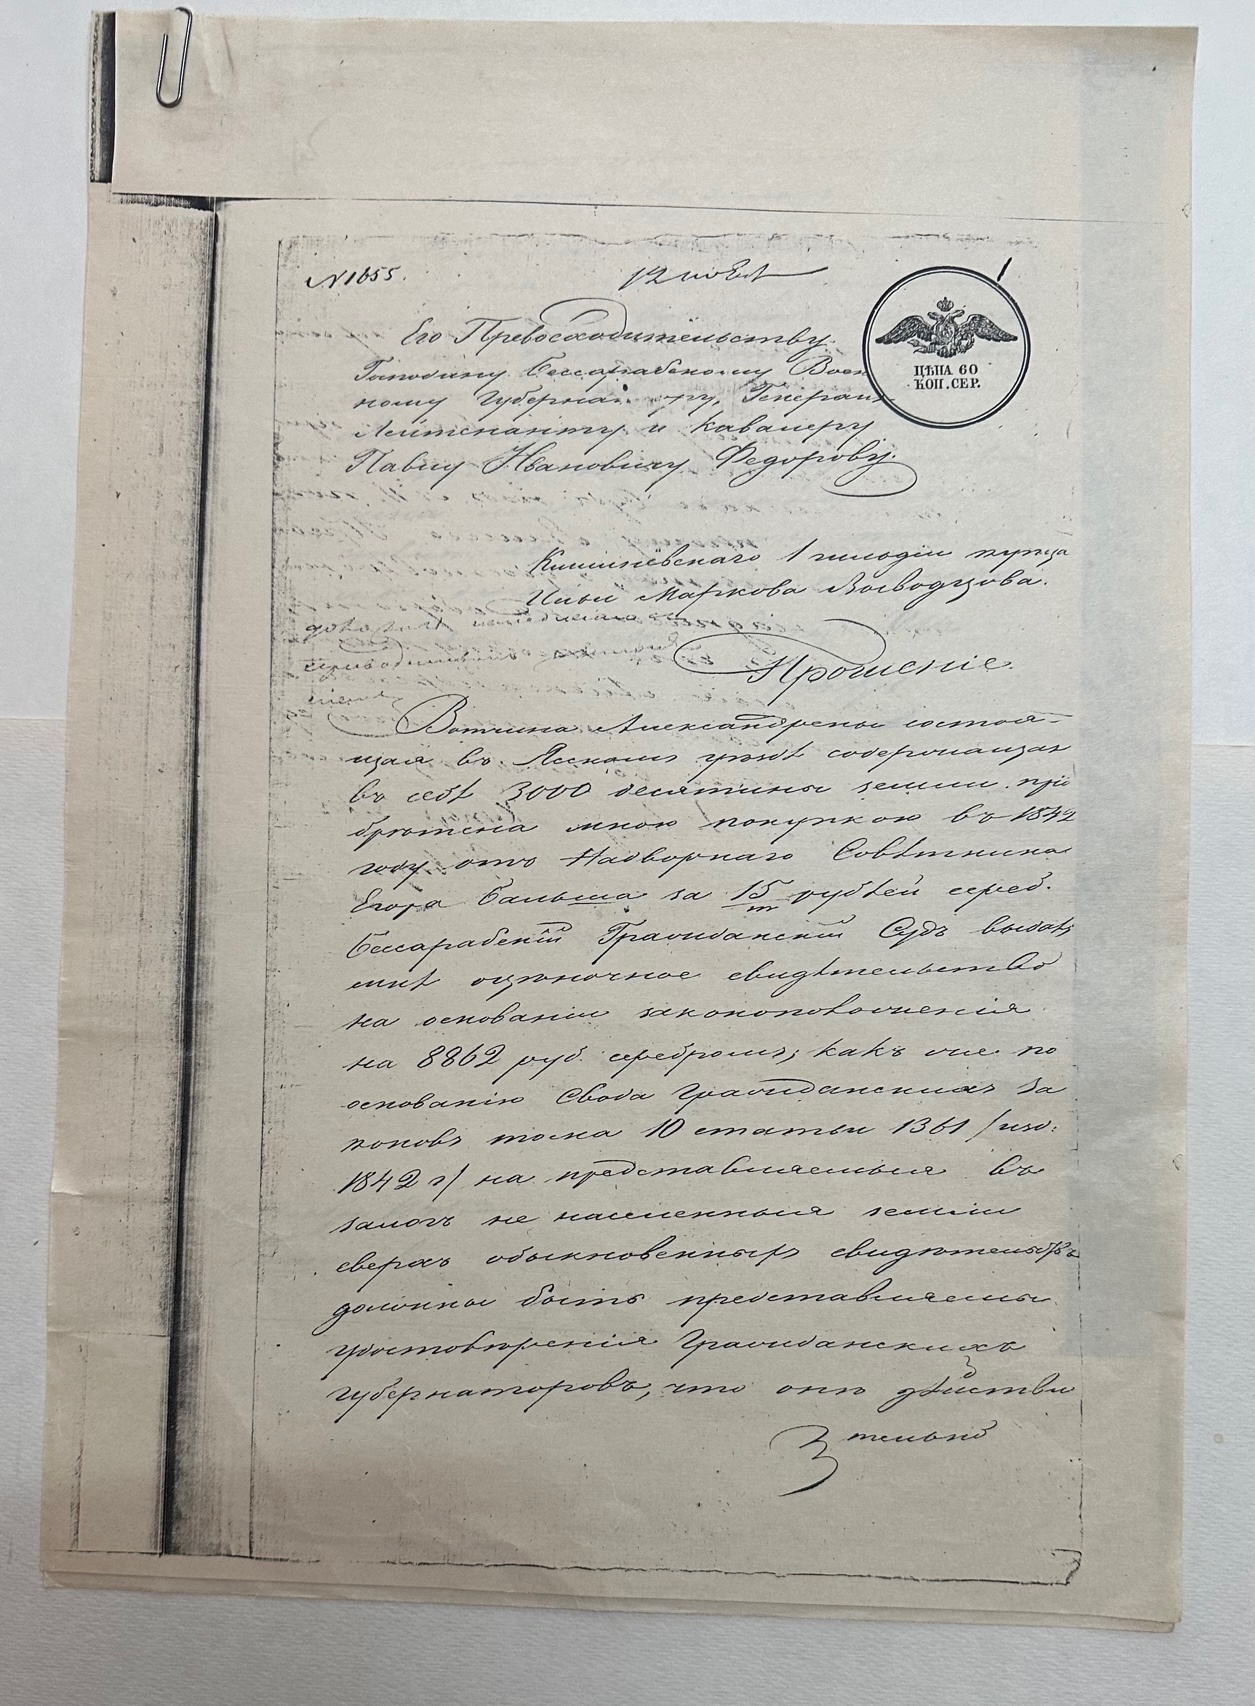 N 1655.
12
1
ЦѢНА 60
КОП. СЕР.
Его Превосходительству
Господину Бессарабскому Воен
ному Губернатору, Генералъ
Лейтенанту и Кавалеру
Павлу Ивановичу Федорову.
Кишинёвскаго 1 гильдіи купца
Ильи Маркова
Прошеніе.
Вотчина Александрены состоя-
щая въ Ясскомъ уѣздѣ содержащая
въ себѣ 3000 десятины земли прі
брѣтена мною покупкою въ 1842
году отъ Надворнаго Совѣтника
Егора Бальша за 15/т рублей сереб.
Бессарабскій Гражданскій Судъ выдалъ
мнѣ оцѣночное свидѣтельство
на основаніи законоположенія
на 8862 руб. серебромъ; какъ же по
основанію Свода Гражданскихъ За
коновъ тома 10 статьи 1361 /изд:
1842 г/ на представляемыя въ
залогъ не населенныя земли
сверхъ обыкновенныхъ свидѣтельствъ
должны быть представляемы
удостовѣренія Гражданскихъ
Губернаторовъ, что онѣ дѣйстви
тельно